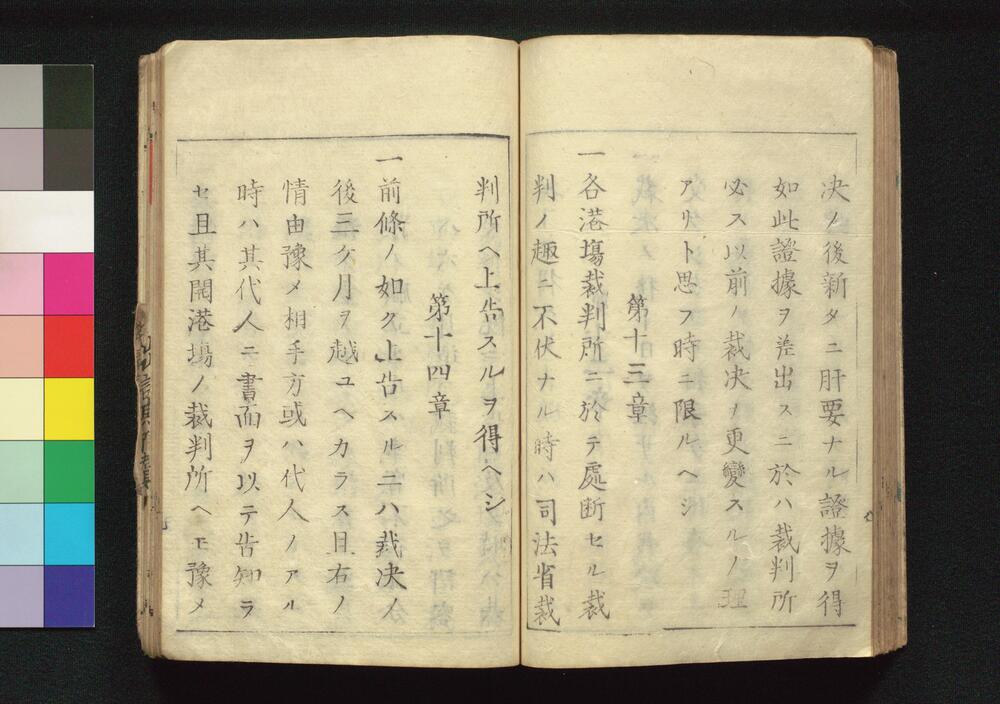 决ノ後新タニ肝要ナル證據ヲ得
如此證據ヲ差出スニ於ハ裁判所
必ス以前ノ裁决ノ更變スルノ理
アリト思フ時ニ限ルヘシ
第十三章
一各港塲裁判所ニ於テ處断セル裁
判ノ趣ニ不伏ナル時ハ司法省裁
判所ヘ上告スルヲ得ヘシ
第十四章
一前條ノ如ク上告スルニハ裁决ノ
後三ケ月ヲ越ユヘカラス且右ノ
情由豫メ相手方或ハ代人ノアル
時ハ其代人ニ書面ヲ以テ告知ラ
セ且其開港塲ノ裁判所ヘモ豫メ